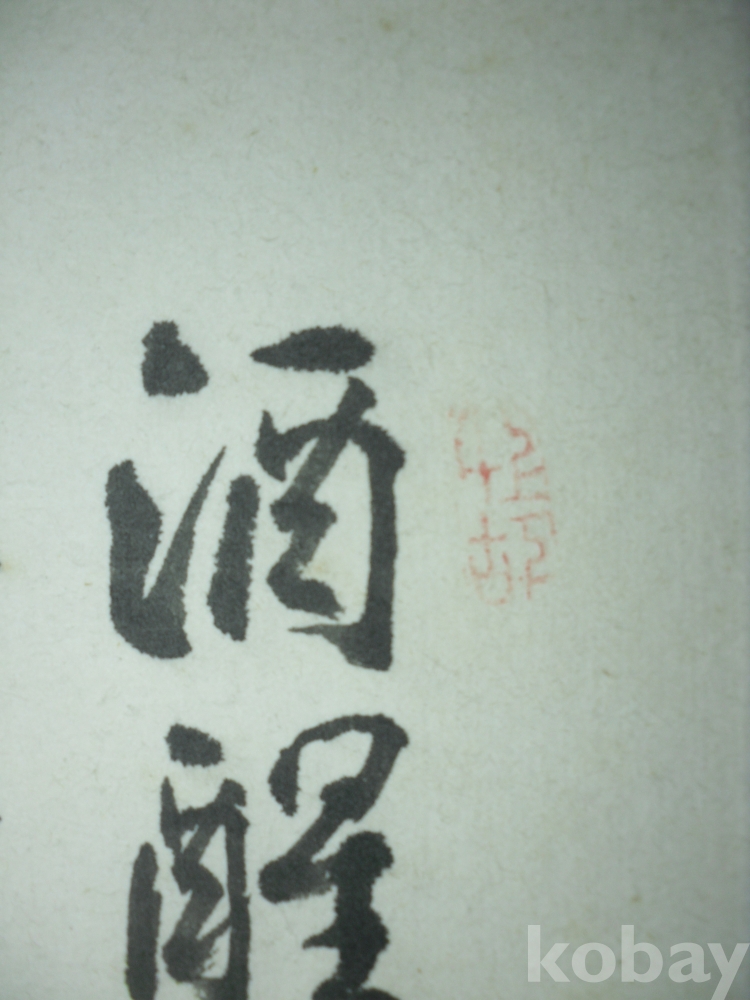 酒醒
kobay